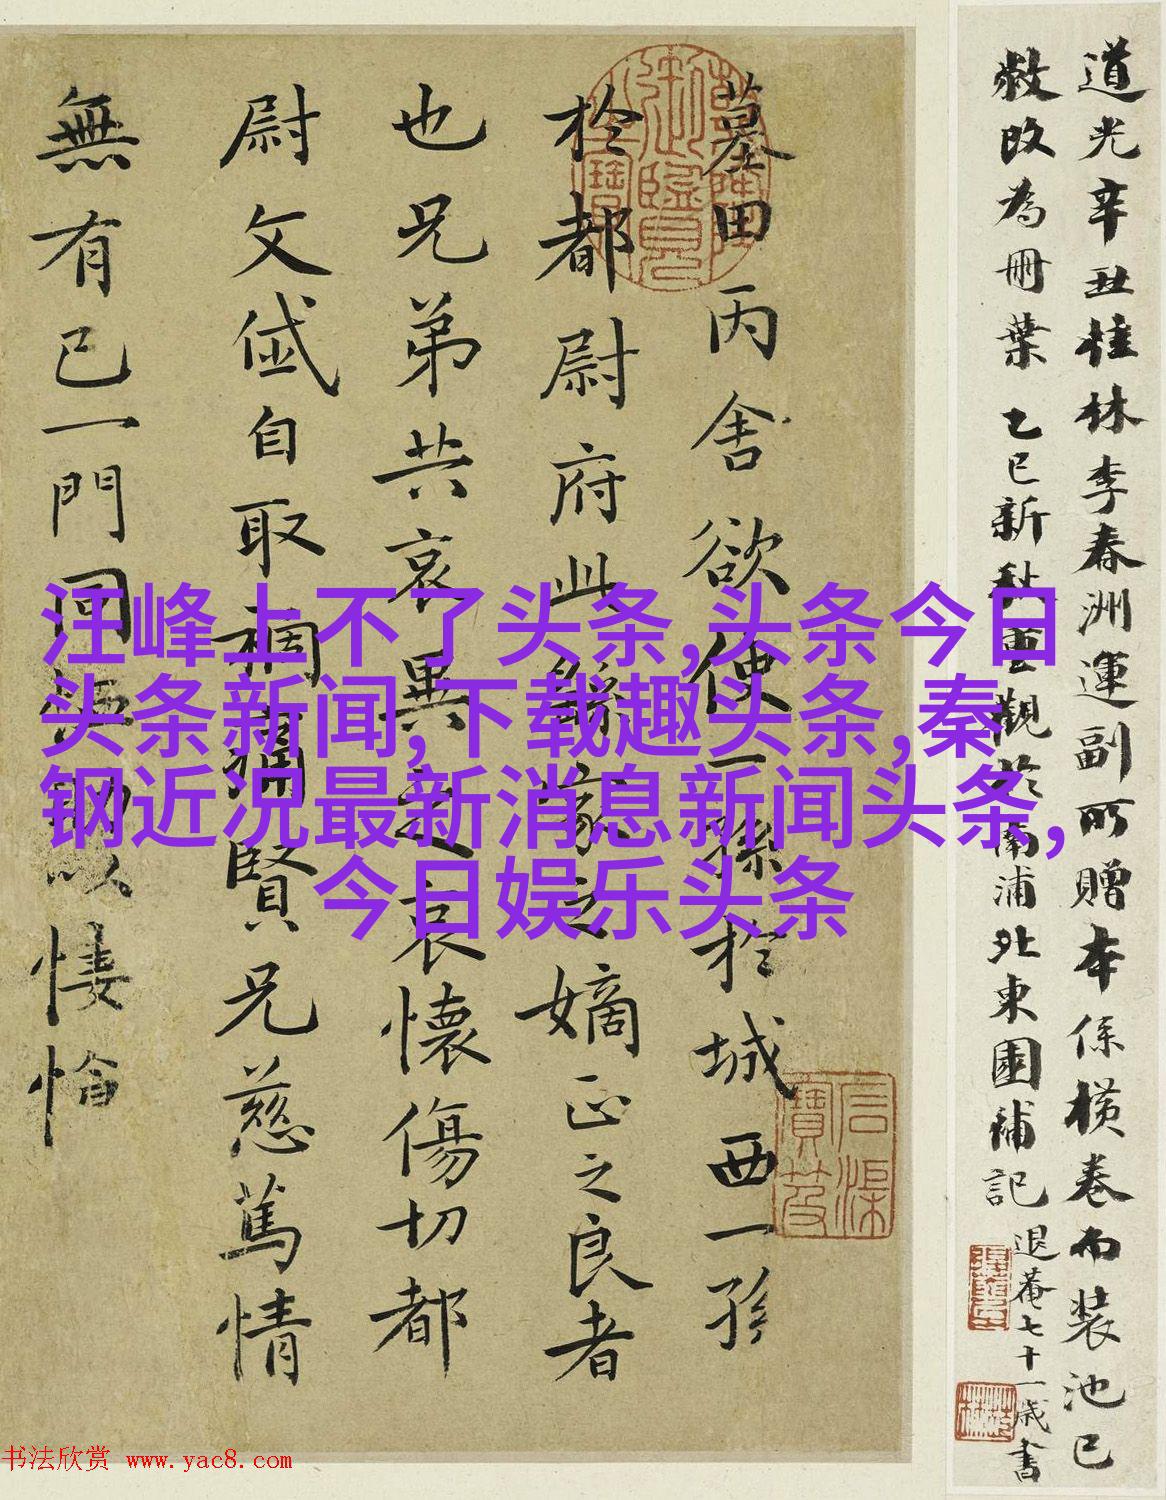 墓田丙舍欲使一孫於城西一孫
於都尉府此繇家之嫡正之良者
也兄弟共哀異之哀懷傷切都
尉文岱自取禍痛賢兄慈篤情
無有已一門同恤助以悽愴
道光辛丑桂林李春洲運副所贈本係橫卷而裝池已
敝改為冊葉乙巳新秋重觀於南浦北東園補記
退菴七十一歲書
汪峰上不了头条,头条今日
头条新闻,下载趣头条,秦
钢近况最新消息新闻头条,
今日娱乐头条
书法欣赏 www.yac8.com